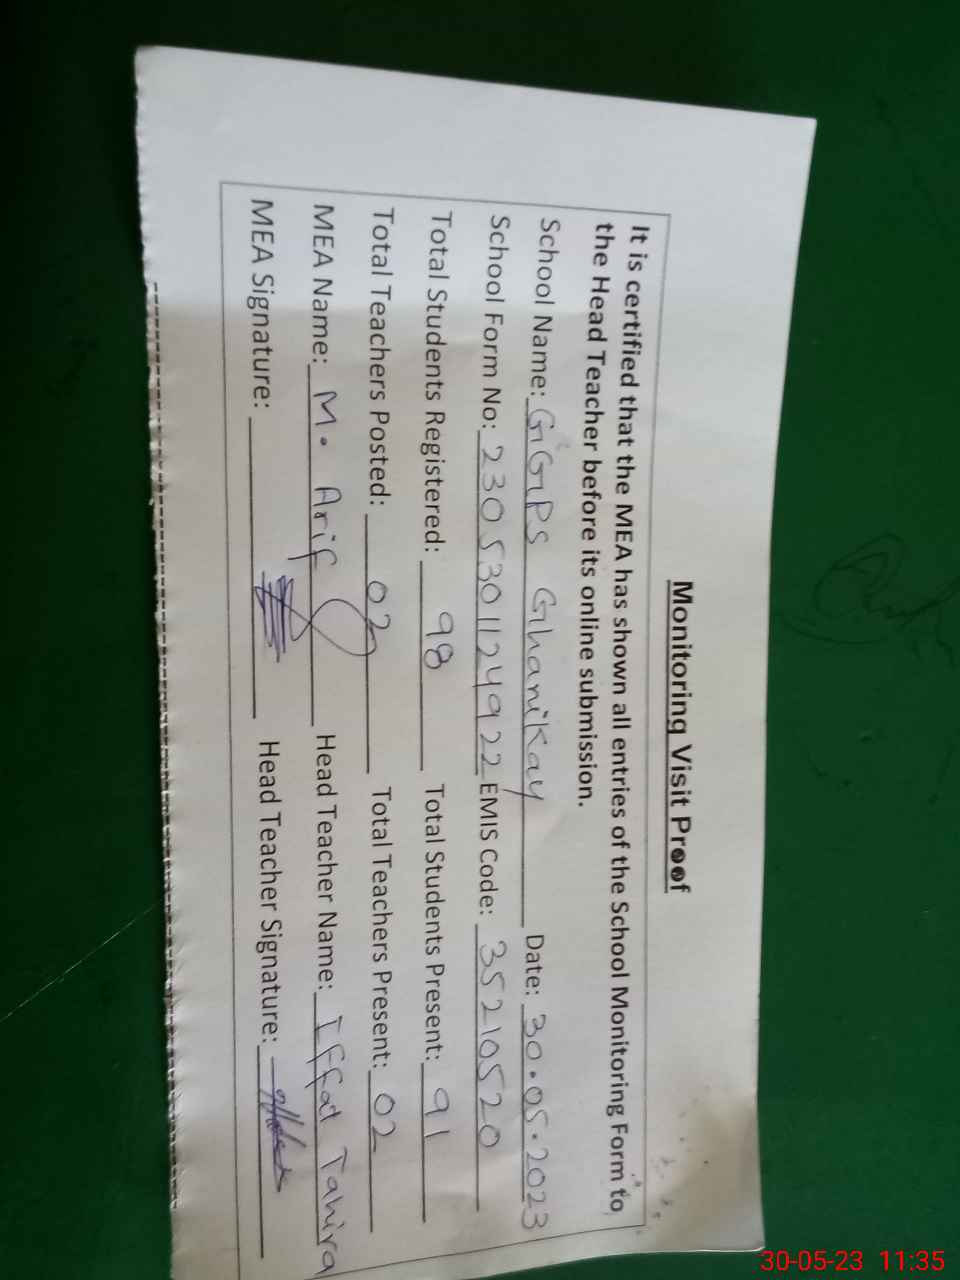 Monitoring Visit Proof
It is certified that the MEA has shown all entries of the School Monitoring Form to
the Head Teacher before its online submission.
School Name: GGPS Ghanikay Date: 30.05.2023
School Form No: 2305301124922 EMIS Code: 35210520
Total Students Registered: 98 Total Students Present: 91
Total Teachers Posted: 02 Total Teachers Present: 02
MEA Name: M. Arif Head Teacher Name: Iffat Tahira
MEA Signature: Head Teacher Signature:
30-05-23 11:35